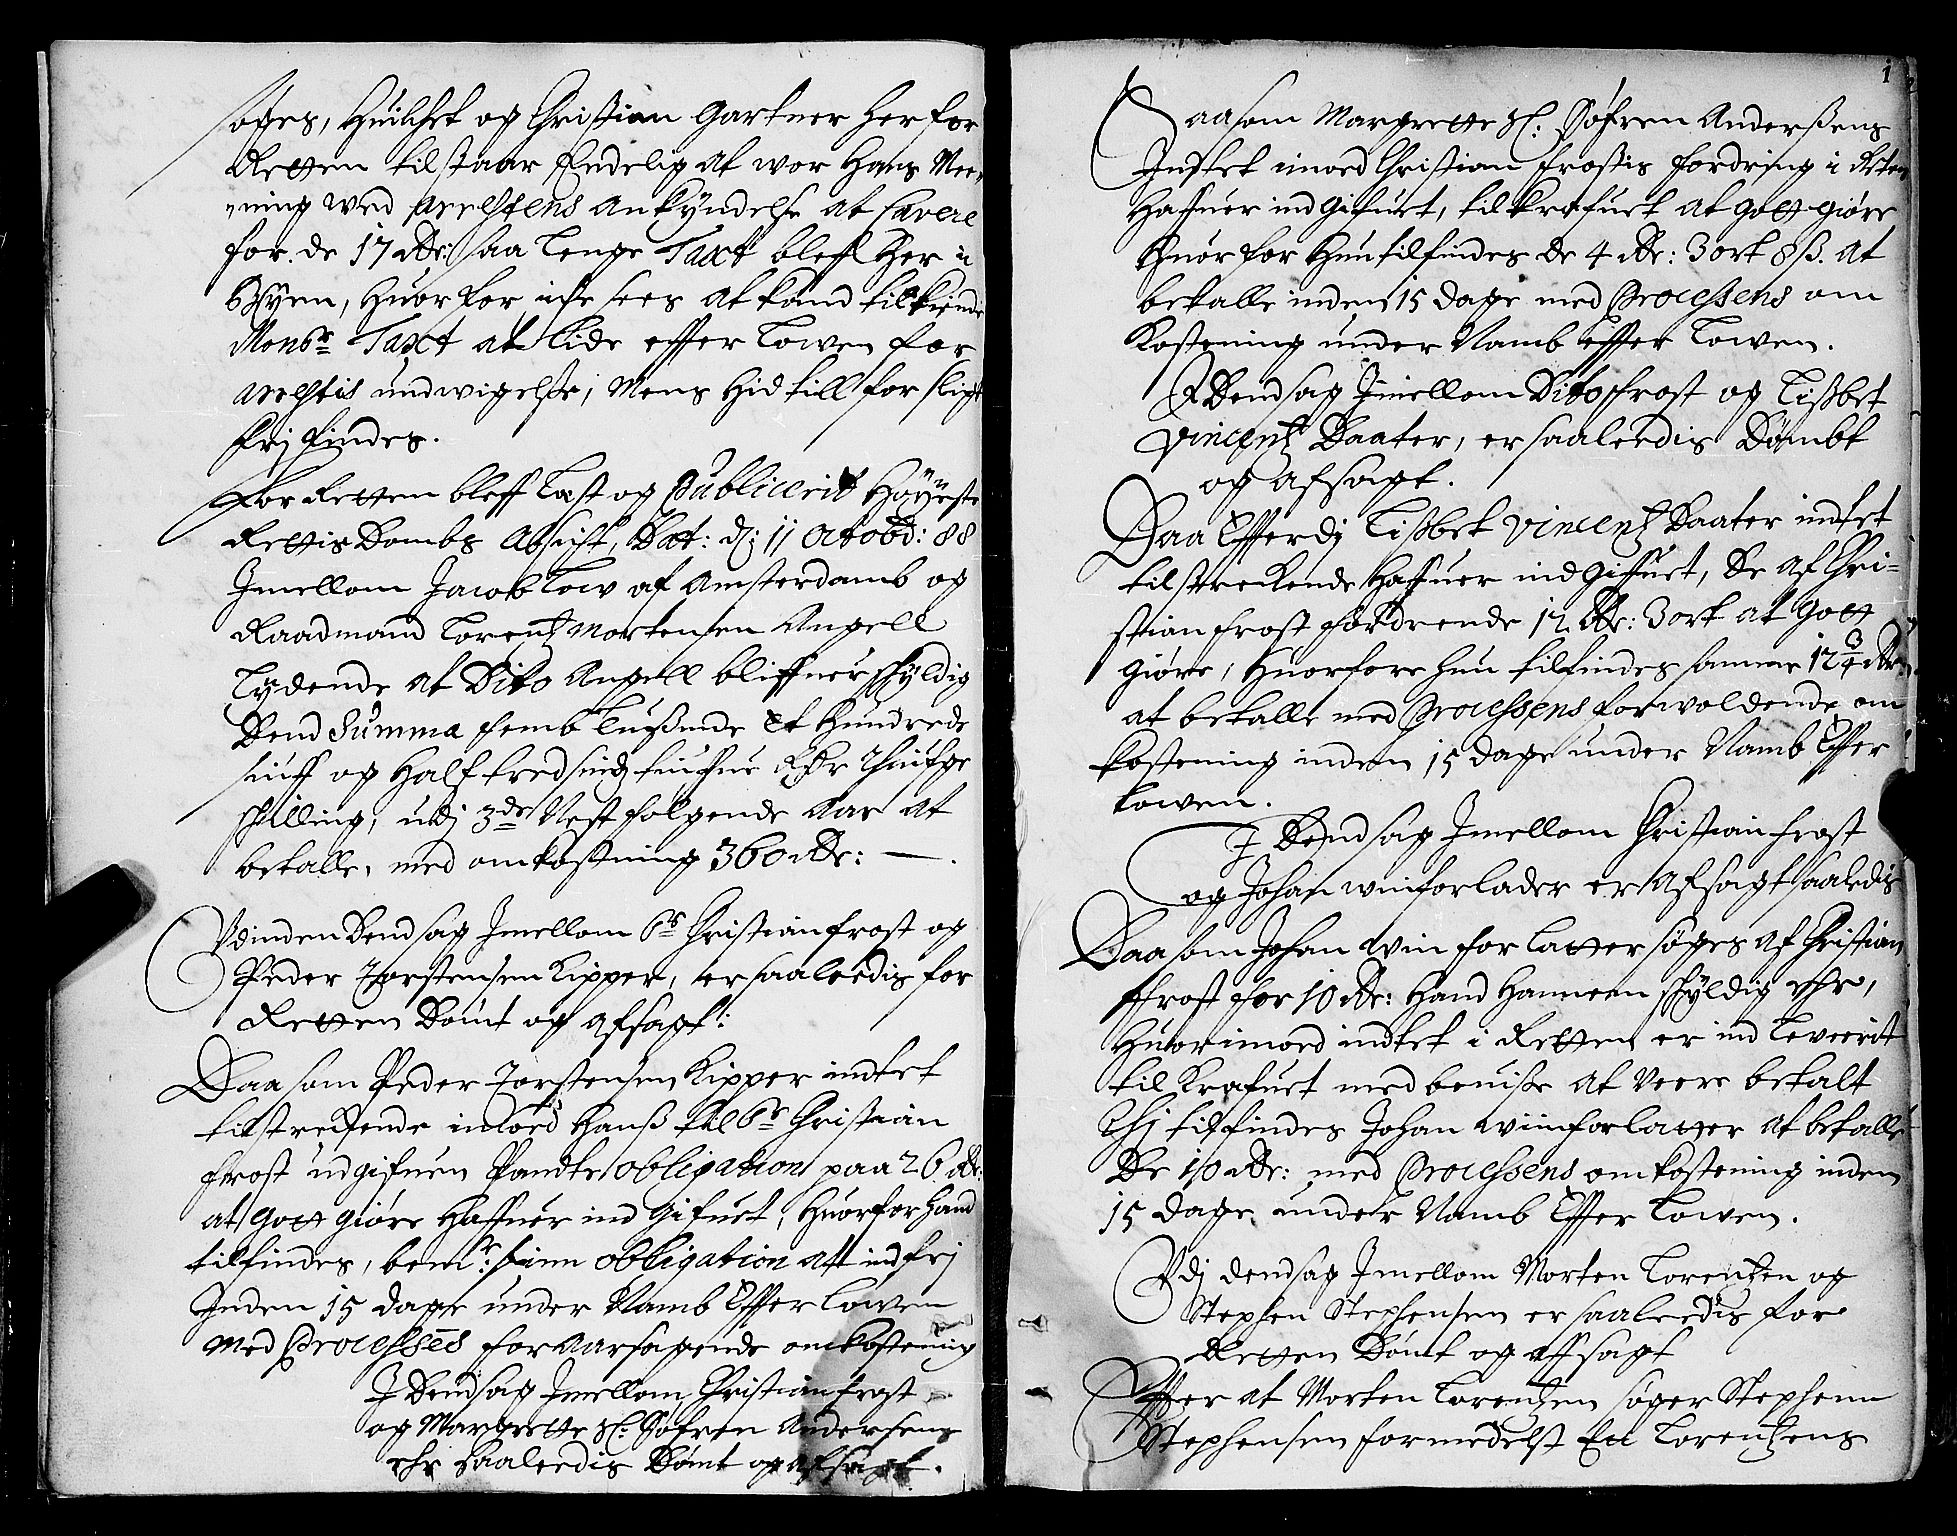 søges, Huilchet og Christian Gartner her for
Retten tilstaar Endelig at wor Hans Mee-
-ning wed Arrestens ankyndelse at Cavere
for de 17 Rdr: saa lenge Taxt bleff her i
Byen, Huorfor icke sees at kand tilkiende
Monsr Taxt at lide effter Lowen for
Arrestis undwigelse, Mens hid till for sligt
frj findes.
For Retten bleff Læst og Publicerit Høyeste
Rettis Dombs Afsicht, Dat: d: 11 Octobr: 88
Jmellom Jacob Low af Amsterdamb og
Raadmand Lorentz Mortensen Angell
Lydende at Dito Angell bliffuer schyldig
Dend Summa femb tusende Et Hundrede
siuff og Half tredsindztiuffue Rdr thiufge
schilling, udj 3de Nest folgende Aar at
betalle, med omkostning 360 Rdr: —.
Udinden Dend sag Jmellom Sr Christian Frost og
Peder Torstensen Kipper, er saaledis for
Retten Dømt og afsagt:
Daa som Peder Torstensen Kipper indtet
tilstreckende imod Hans til Sr Christian
Frost udgifuen Pandte obligation paa 26 Rdr:
at Gott giøre Haffuer ind Gifuet, Huorfor hand
tilfindes, bemte: sinn obligation att indfrj
Jnden 15 dage under Namb Effter Lowen
med Processens foraarsagende omkostening
J Dend sag Jmellom Christian Frost
og Margrette Sl: Søfren Andersens
ehr Saaledis Dømt og afsagt.
1
Daa som Margrette Sl: Søfren Anderssens
Jntet imod Christian Frostis fordring i Retten
Haffuer ind Gifuet, til krafuet at Gott giøre
Huorfor Hun tilfindes de 4 Rdr: 3 ort 8 ß. at
betalle inden 15 dage med Processens om
Kostening under Namb effter Lowen.
J Dend sag Jmellom Dito Frost og Lissbet
Vincentz Daater, er saaleedis Dømbt
og afsagt.
Daa Efferdj Lissbet Vincentz Daater indtet
tilstreckende Haffuer ind Giffuet, de af Chri-
stian Frost fordrende 12 Rdr: 3 ort at Gott
Giøre, Huorfore hun tilfindes samme 12 3/4 Rdr:
at betalle med Processens forwoldende om
kostening inden 15 dage under Namb Effter
Lowen.
J Dend sag Jmellom Christian Frost
og Johan wiinforlader er afsagt saaledis
Daa som Johan wiin forlatter søges af Christian
Frost for 10 Rdr: Hand Hannem schyldig ehr,
Huorimod indtet i Retten er ind Leveerit
til krafuet med beviise at Veere betalt
Thj tilfindes Johan wiinforlatter at betalle
De 10 Rdr: med Processens omkostening inden
15 dage under Namb Effter Lowen.
Udj dend sag Jmellom Morten Lorentzen og
Stephen Stephensen er saaleedis for
Retten Dømt og affsagt
Effter at Morten Lorentzen søger Stephenn
Stephensen formedelst En Lorentzens